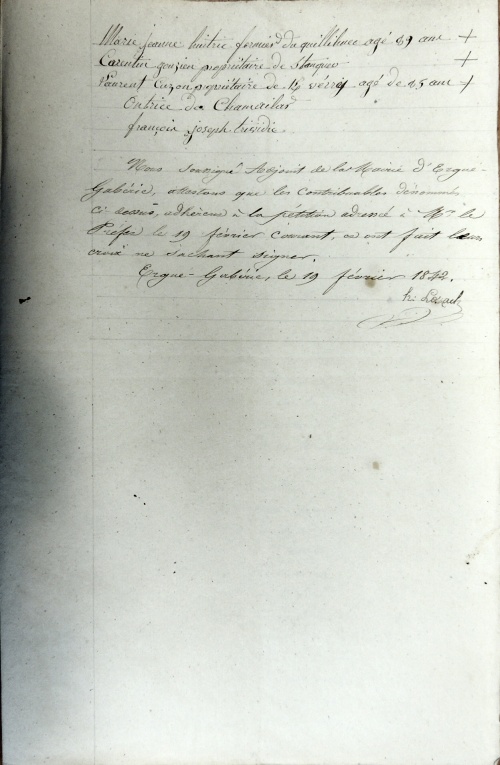 Marie jeanne huitric fermier du quillihuec agé 49 ans +
Corentin gouzien propriétaire de Stanquer +
Laurent Cuzon propriétaire de agé de 45 ans +
de Chamaillard
françois joseph trividic
Nous soussigné Adjoint de la Mairie d'Ergué-
Gabéric, attestons que les contribuables dénommés
ci dessus, adhérent à la pétition adressé à Mr le
Préfet le 19 février courant, et ont fait leurs
croix ne sachant signer.
Ergué-Gabéric, le 19 février 1842.